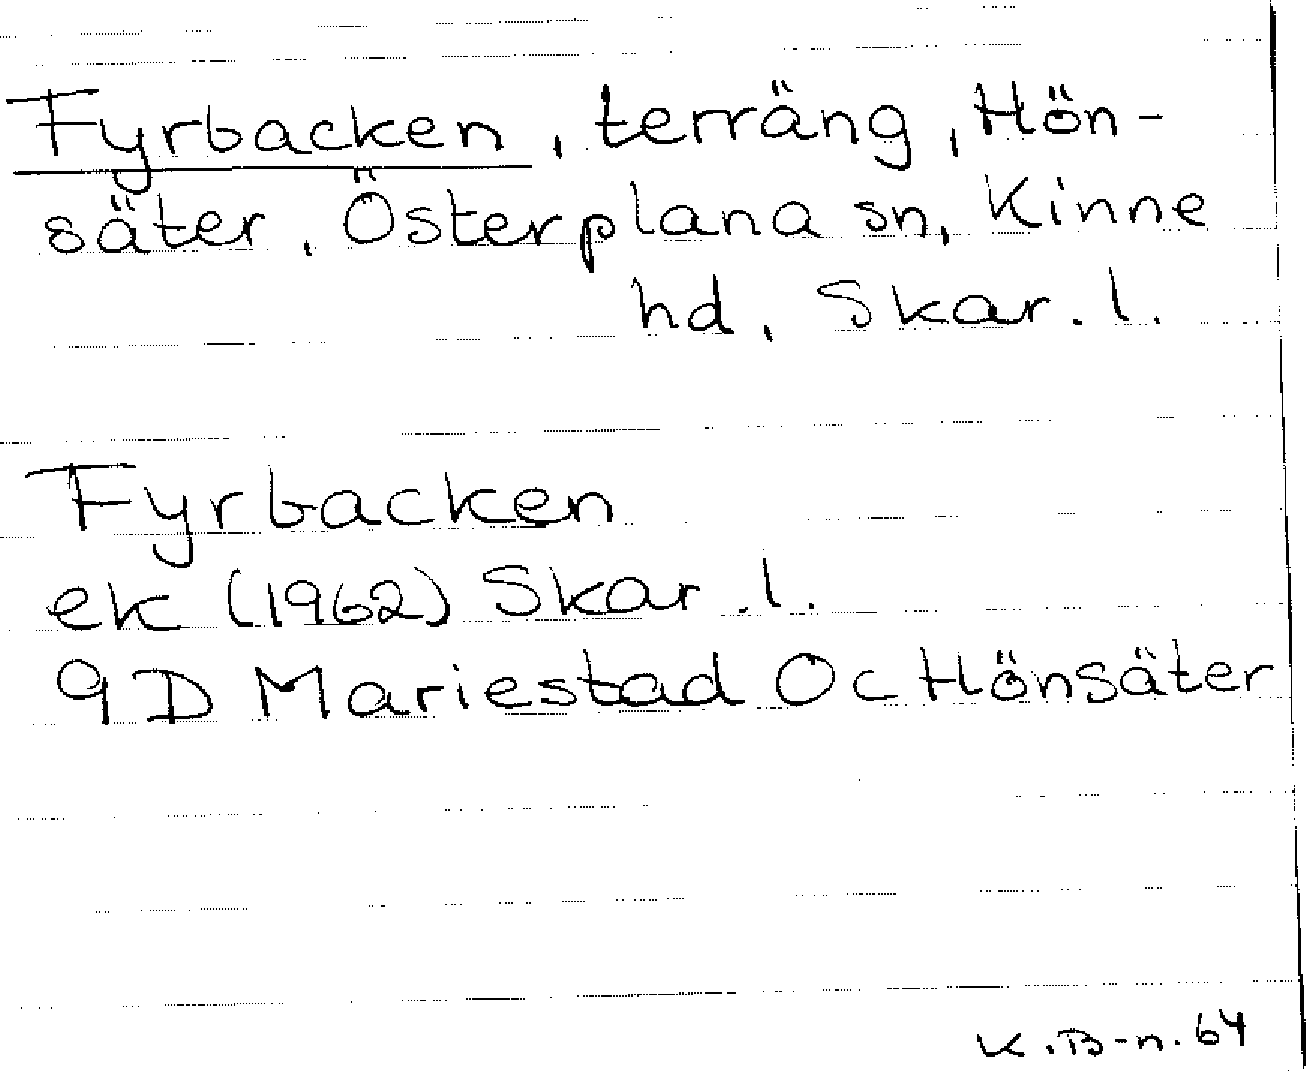 Fyrbacken, terräng, Hön-
säter, Österplana sn, Kinne
hd, Skar. l.
Fyrbacken
ek (1962) Skar. l.
9D Mariestad Oc Hönsäter
K.B-n. 64